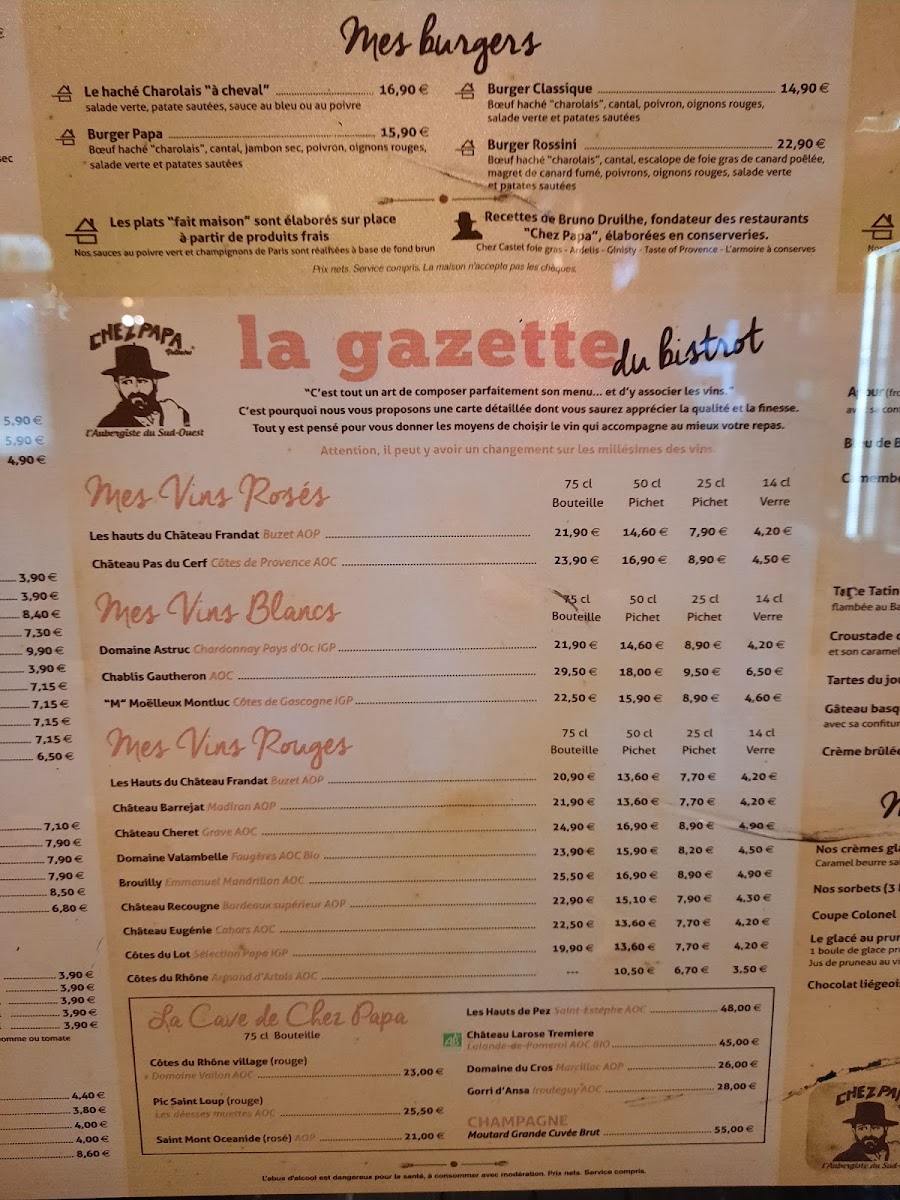 Mes burgers
Le haché Charolais "à cheval" 16,90 €
salade verte, patate sautées, sauce au bleu ou au poivre
Burger Papa 15,90 €
Bœuf haché "charolais", cantal, jambon sec, poivron, oignons rouges,
salade verte et patates sautées
Burger Classique 14,90 €
Bœuf haché "charolais", cantal, poivron, oignons rouges,
salade verte et patates sautées
Burger Rossini 22,90 €
Bœuf haché "charolais", cantal, escalope de foie gras de canard poêlée,
magret de canard fumé, poivrons, oignons rouges, salade verte
et patates sautées
Les plats "fait maison" sont élaborés sur place
à partir de produits frais
Nos sauces au poivre vert et champignons de Paris sont réalhées à base de fond brun
Recettes de Bruno Druilhe, fondateur des restaurants
"Chez Papa", élaborées en conserveries.
Chez Castel foie gras - Ardelis - Ginisty - Taste of Provence - L'armoire à conserves
Prix nets. Service compris. La maison n'accepte pas les chèques.
CHEZ PAPA
l'Aubergiste du Sud-Ouest
la gazette du bistrot
"C'est tout un art de composer parfaitement son menu... et d'y associer les vins."
C'est pourquoi nous vous proposons une carte détaillée dont vous saurez apprécier la qualité et la finesse.
Tout y est pensé pour vous donner les moyens de choisir le vin qui accompagne au mieux votre repas.
Attention, il peut y avoir un changement sur les millésimes des vins.
Mes Vins Rosés
75 cl 50 cl 25 cl 14 cl
Bouteille Pichet Pichet Verre
Les hauts du Château Frandat Buzet AOP 21,90 € 14,60 € 7,90 € 4,20 €
Château Pas du Cerf Côtes de Provence AOC 23,90 € 16,90 € 8,90 € 4,50 €
Mes Vins Blancs
75 cl 50 cl 25 cl 14 cl
Bouteille Pichet Pichet Verre
Domaine Astruc Chardonnay Pays d'Oc IGP 21,90 € 14,60 € 8,90 € 4,20 €
Chablis Gautheron AOC 29,50 € 18,00 € 9,50 € 6,50 €
"M" Moëlleux Montluc Côtes de Gascogne IGP 22,50 € 15,90 € 8,90 € 4,60 €
Mes Vins Rouges
75 cl 50 cl 25 cl 14 cl
Bouteille Pichet Pichet Verre
Les Hauts du Château Frandat Buzet AOP 20,90 € 13,60 € 7,70 € 4,20 €
Château Barrejat Madiran AOP 21,90 € 13,60 € 7,70 € 4,20 €
Château Cheret Grave AOC 24,90 € 16,90 € 8,90 € 4,90 €
Domaine Valambelle Faugères AOC Bio 23,90 € 15,90 € 8,20 € 4,50 €
Brouilly Emmanuel Mandrillon AOC 25,50 € 16,90 € 8,90 € 4,90 €
Château Recougne Bordeaux supérieur AOP 22,90 € 15,10 € 7,90 € 4,30 €
Château Eugénie Cahors AOC 22,50 € 13,60 € 7,70 € 4,20 €
Côtes du Lot Sélection Papa IGP 19,90 € 13,60 € 7,70 € 4,20 €
Côtes du Rhône Armand d'Artois AOC --- 10,50 € 6,70 € 3,50 €
La Cave de Chez Papa
75 cl Bouteille
Côtes du Rhône village (rouge)
Domaine Vallon AOC 23,00 €
Pic Saint Loup (rouge)
Les déesses muettes AOC 25,50 €
Saint Mont Oceanide (rosé) AOP 21,00 €
Les Hauts de Pez Saint-Estèphe AOC 48,00 €
AB Château Larose Tremiere
Lalande-de-Pomerol AOC BIO 45,00 €
Domaine du Cros Marcillac AOP 26,00 €
Gorri d'Ansa Irouleguy AOC 28,00 €
CHAMPAGNE
Moutard Grande Cuvée Brut 55,00 €
L'abus d'alcool est dangereux pour la santé, à consommer avec modération. Prix nets. Service compris.
sec
5,90 €
5,90 €
4,90 €
3,90 €
3,90 €
8,40 €
7,30 €
9,90 €
3,90 €
7,15 €
7,15 €
7,15 €
7,15 €
6,50 €
7,10 €
7,90 €
7,90 €
7,90 €
8,50 €
6,80 €
3,90 €
3,90 €
3,90 €
3,90 €
3,90 €
omme ou tomate
4,40 €
3,80 €
4,00 €
4,00 €
8,60 €
Tatin
flambée au Ba
Croustade
et son caramel
Tartes du jou
Gâteau basq
avec sa confitur
Crème brûlée
Nos crèmes gla
Caramel beurre sa
Nos sorbets (3
Coupe Colonel
Le glacé au prun
1 boule de glace pr
Jus de pruneau au vi
Chocolat liégeois
CHEZ PA
l'Aubergiste du Sud-